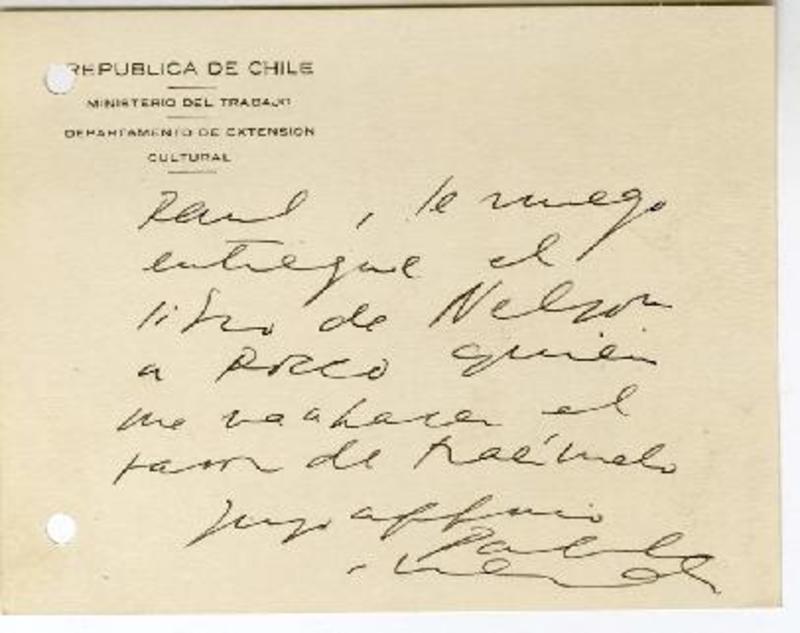 REPUBLICA DE CHILE
MINISTERIO DEL TRABAJO
DEPARTAMENTO DE EXTENSION
CULTURAL
Raul, le ruego
entregue el
libro de Nelson
a Rocco quien
me va a hacer el
favor de traérmelo
Suyo affmo
Pablo